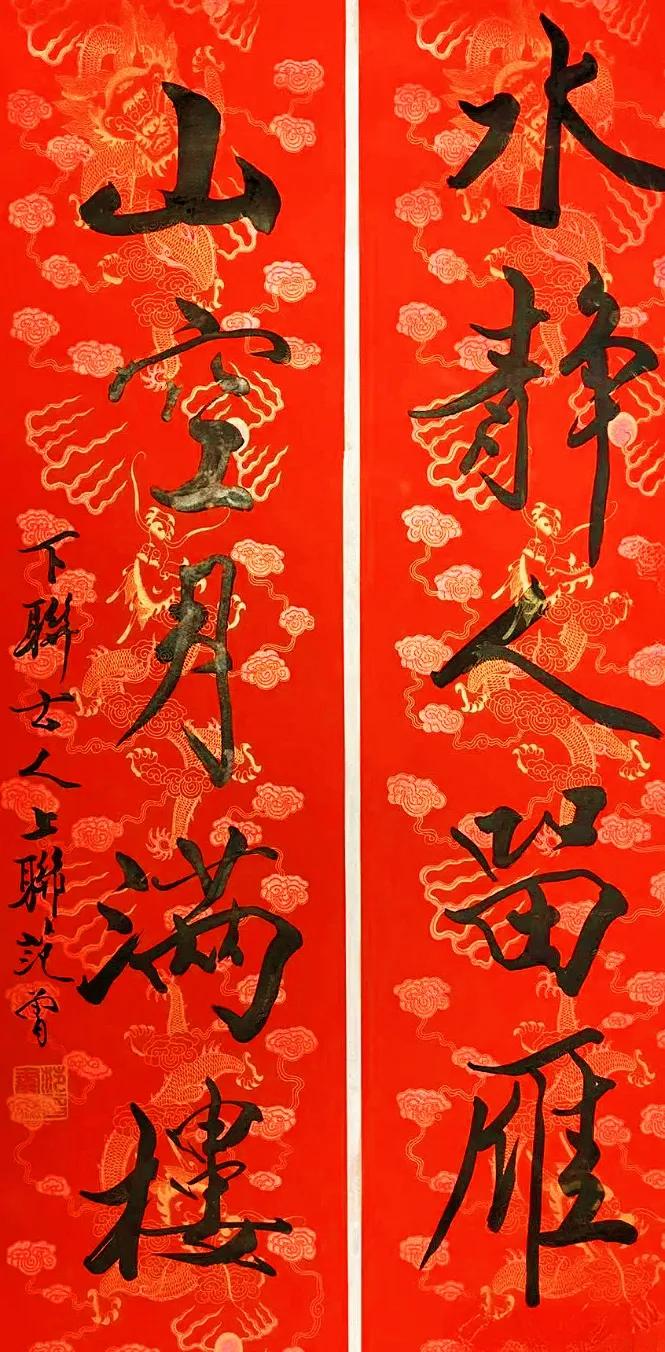 水静人留雁
山空月满樓
下聯古人上聯范曾